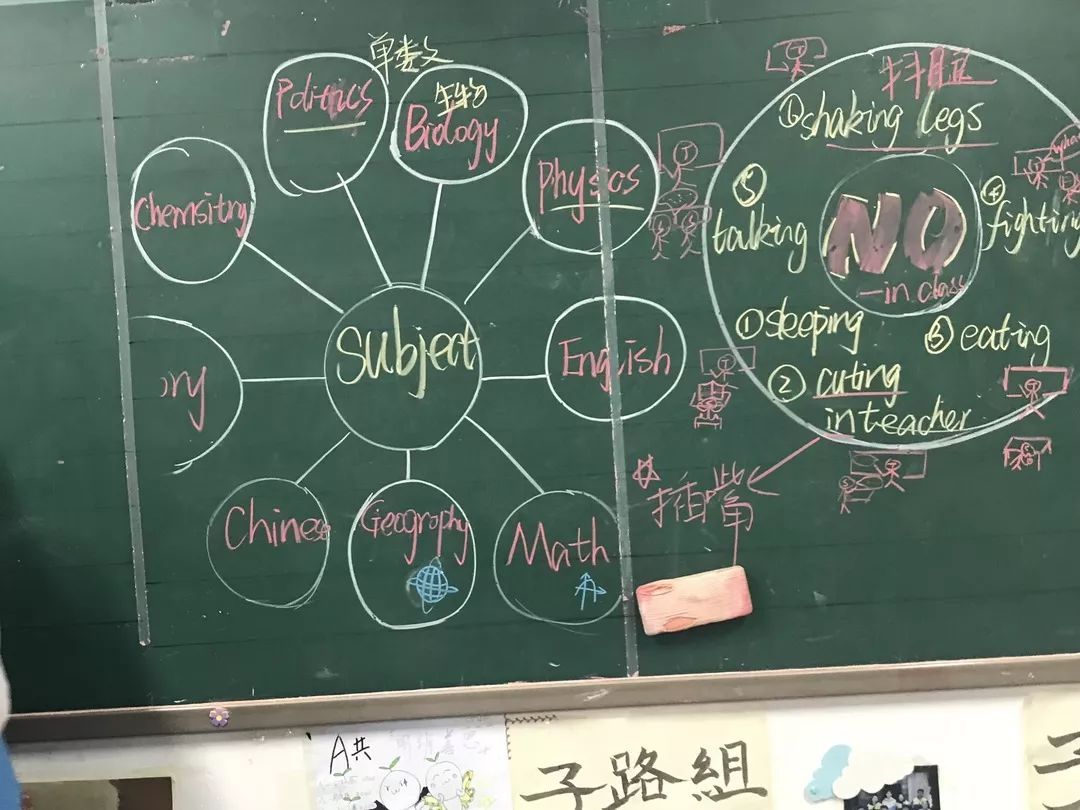 单数
Politics
生物
Biology
Physics
Chemsitry
Subject
English
ory
Chinese
Geography
Math
抖腿
shaking legs
⑤
talking
NO
-in class
④
fighting
①sleeping
②cuting
in teacher
eating
插嘴
A共
子路組
子